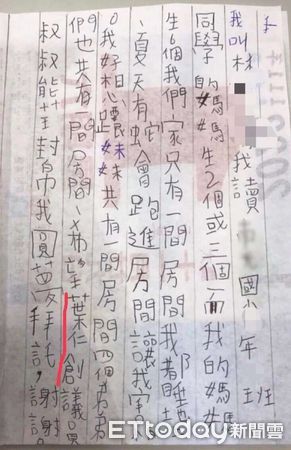 我叫林
我讀
國小年班
同學的媽媽生2個或三個而我的媽媽
生6個我們家只有一間房間我都睡地
、夏天有蛇會跑進房間讓我害
。我好想跟妹妹共有一間房間四個弟弟
們也共有一間房間、希望葉仁創議員
叔叔能幫我圓夢拜託,謝謝
ETtoday新聞雲